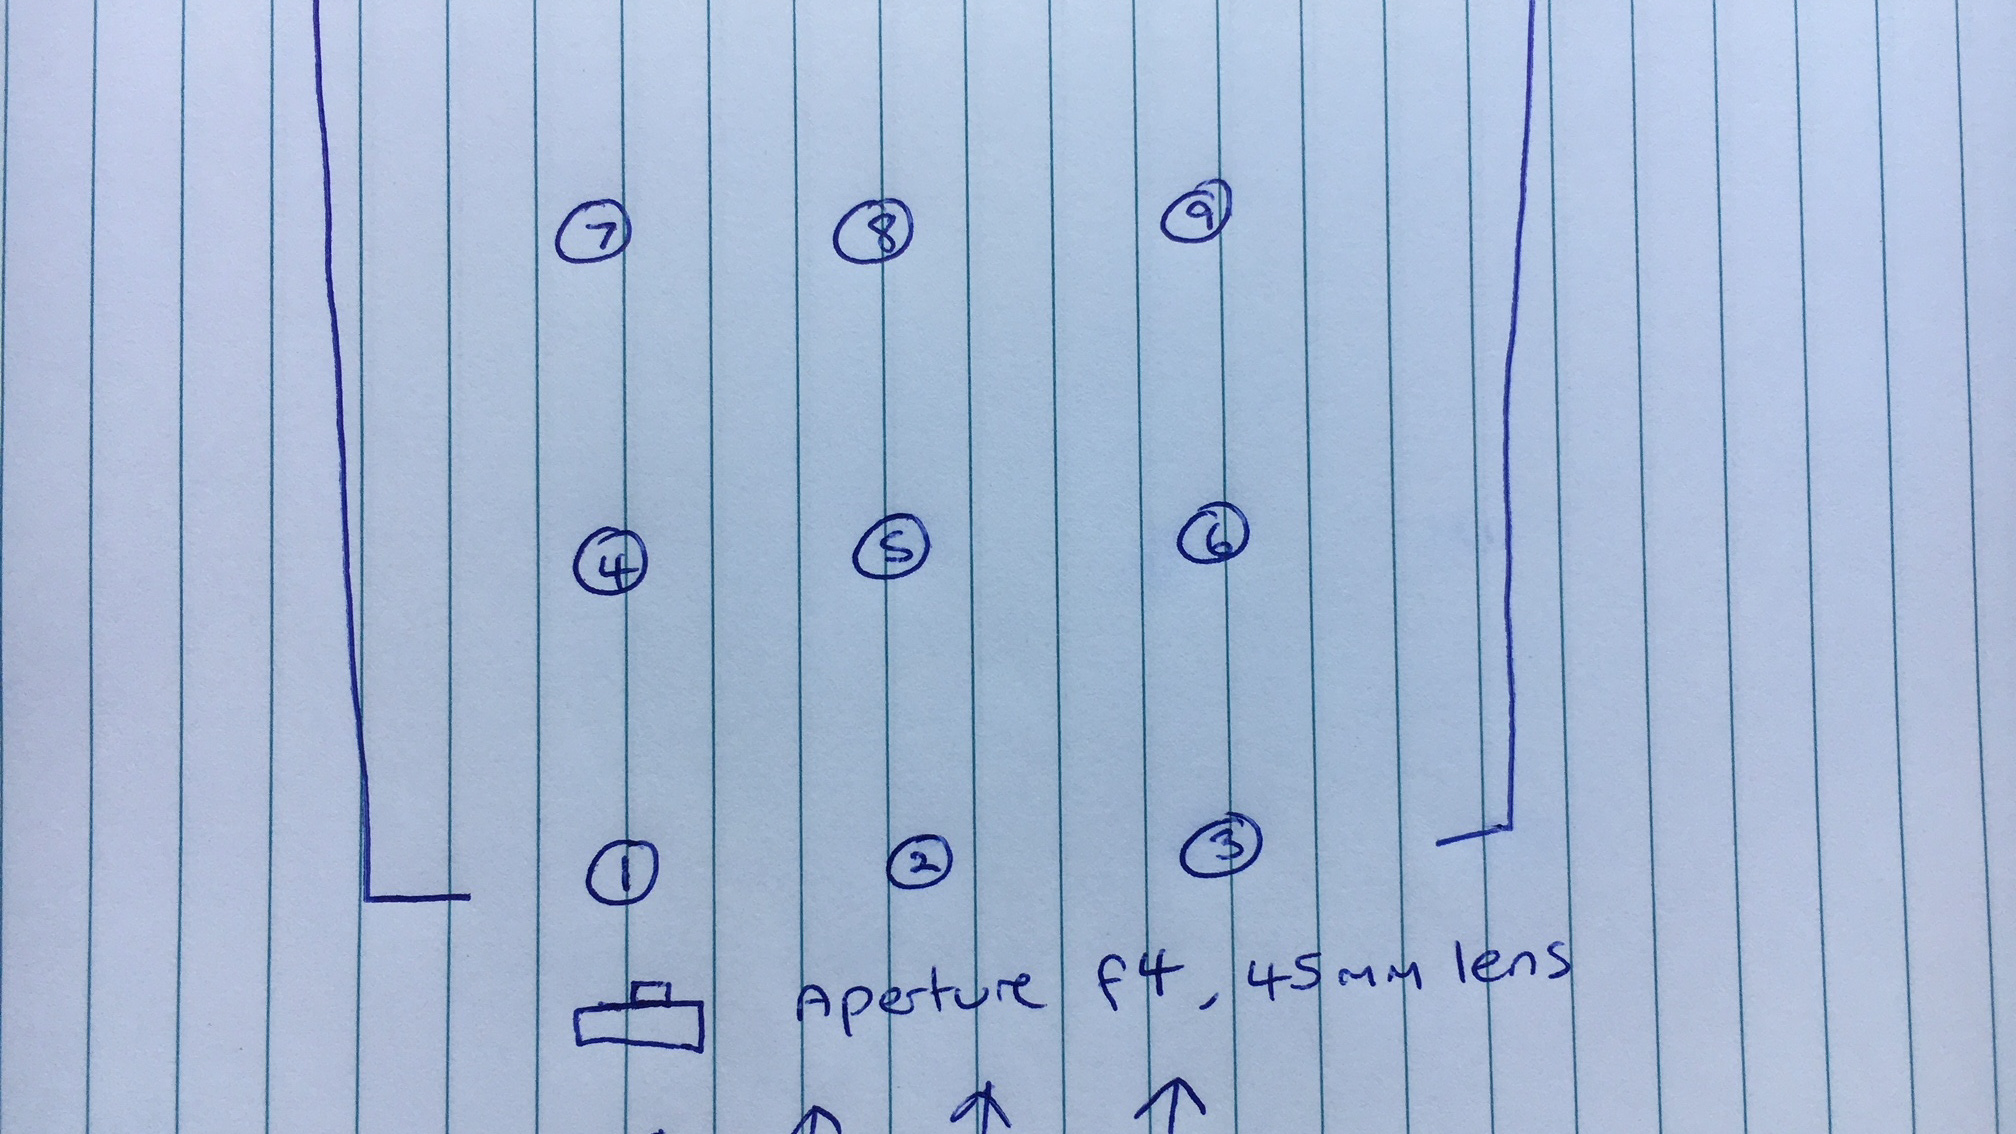 7 8 9
4 5 6
1 2 3
Aperture f4, 45mm lens